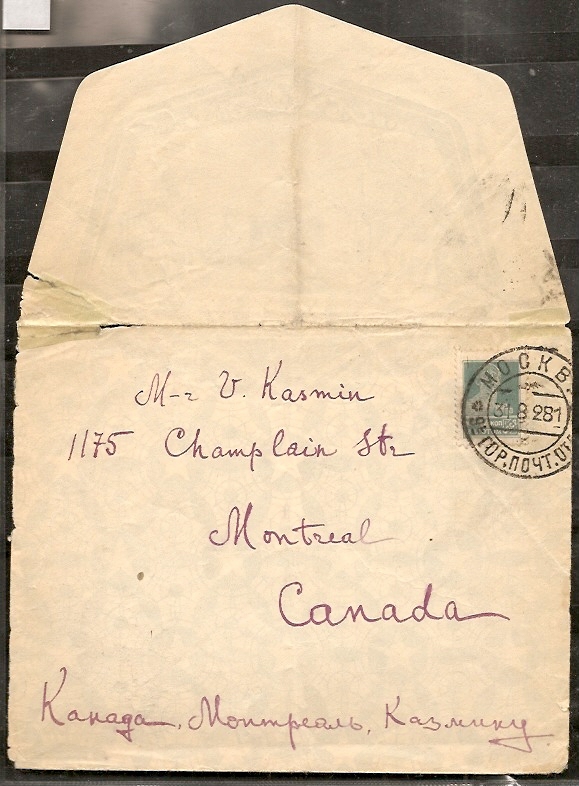 МОСКВ
31 8 28
ГОР.ПОЧТ.ОТ
M-r V. Kasmin
1175 Champlain Str
Montreal
Canada
Канада, Монтреаль, Казмину